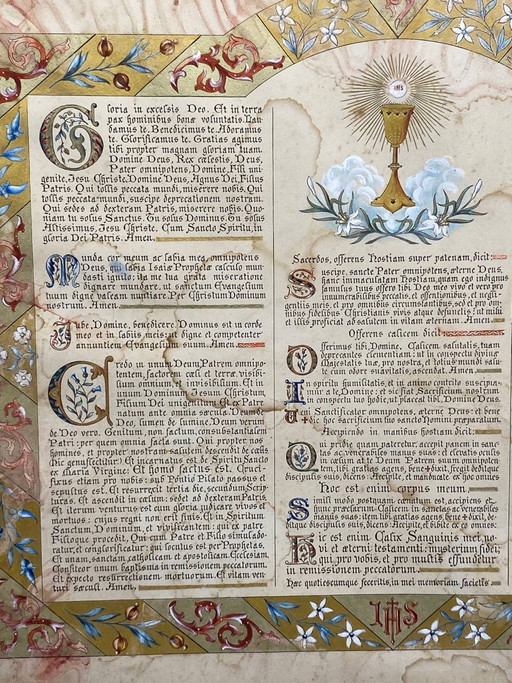 Gloria in excelsis Deo. Et in terra
pax hominibus bonæ voluntatis. Lau-
damus te. Benedicimus te. Adoramus
te. Glorificamus te. Gratias agimus
tibi propter magnam gloriam tuam.
Domine Deus, Rex cœlestis, Deus,
Pater omnipotens. Domine, Fili uni-
genite, Jesu Christe. Domine Deus, Agnus Dei, Filius
Patris. Qui tollis peccata mundi, miserere nobis. Qui
tollis peccata mundi, suscipe deprecationem nostram.
Qui sedes ad dexteram Patris, miserere nobis. Quo-
niam tu solus Sanctus. Tu solus Dominus. Tu solus
Altissimus, Jesu Christe. Cum Sancto Spiritu, in
gloria Dei Patris. Amen.
Munda cor meum ac labia mea, omnipotens
Deus, qui labia Isaiæ Prophetæ calculo mun-
dasti ignito: ita me tua grata miseratione
dignare mundare, ut sanctum Evangelium
tuum digne valeam nuntiare. Per Christum Dominum
nostrum. Amen.
Jube, Domine, benedicere. Dominus sit in corde
meo et in labiis meis: ut digne et competenter
annuntiem Evangelium suum. Amen.
Credo in unum Deum, Patrem omnipo-
tentem, factorem cœli et terræ, visibi-
lium omnium, et invisibilium. Et in
unum Dominum Jesum Christum,
Filium Dei unigenitum. Et ex Patre
natum ante omnia sæcula. Deum de
Deo, lumen de lumine, Deum verum
de Deo vero. Genitum, non factum, consubstantialem
Patri: per quem omnia facta sunt. Qui propter nos
homines, et propter nostram salutem descendit de cœlis.
Hic genuflectitur. Et incarnatus est de Spiritu Sancto
ex Maria Virgine: Et homo factus est. Cruci-
fixus etiam pro nobis: sub Pontio Pilato passus et
sepultus est. Et resurrexit tertia die, secundum Scrip-
turas. Et ascendit in cœlum: sedet ad dexteram Patris.
Et iterum venturus est cum gloria judicare vivos et
mortuos: cujus regni non erit finis. Et in Spiritum
Sanctum, Dominum, et vivificantem: qui ex Patre
Filioque procedit. Qui cum Patre et Filio simul ado-
ratur, et conglorificatur: qui locutus est per Prophetas.
Et unam, sanctam, catholicam et apostolicam Ecclesiam.
Confiteor unum baptisma in remissionem peccatorum.
Et expecto resurrectionem mortuorum. Et vitam ven-
turi sæculi. Amen.
IHS
Sacerdos, offerens Hostiam super patenam, dicit:
Suscipe, sancte Pater omnipotens, æterne Deus,
hanc immaculatam Hostiam, quam ego indignus
famulus tuus offero tibi Deo meo vivo et vero pro
innumerabilibus peccatis, et offensionibus, et negli-
gentiis meis, et pro omnibus circumstantibus, sed et pro om-
nibus fidelibus Christianis vivis atque defunctis: ut mihi
et illis proficiat ad salutem in vitam æternam. Amen.
Offerens calicem dicit:
Offerimus tibi, Domine, Calicem salutaris, tuam
deprecantes clementiam: ut in conspectu divinæ
Majestatis tuæ, pro nostra, et totius mundi salu-
te, cum odore suavitatis, ascendat. Amen.
In spiritu humilitatis, et in animo contrito suscipia-
mur a te, Domine: et sic fiat Sacrificium nostrum
in conspectu tuo hodie, ut placeat tibi, Domine Deus.
Veni Sanctificator omnipotens, æterne Deus: et bene-
dic hoc Sacrificium tuo sancto Nomini præparatum.
Accipiendo in manibus hostiam dicit:
Qui pridie quam pateretur, accepit panem in sanc-
tas ac venerabiles manus suas: et elevatis oculis
in cœlum ad te Deum Patrem suum omnipoten-
tem, tibi gratias agens, bene✠dixit, fregit deditque
discipulis suis, dicens: Accipite, et manducate ex hoc omnes
Hoc est enim corpus meum.
Simili modo postquam cœnatum est, accipiens et
hunc præclarum Calicem in sanctas ac venerabiles
manus suas: item tibi gratias agens, bene✠dixit, de-
ditque discipulis suis, dicens: Accipite, et bibite ex eo omnes:
Hic est enim Calix Sanguinis mei, no-
vi et æterni testamenti: mysterium fidei;
qui pro vobis, et pro multis effundetur
in remissionem peccatorum.
Hæc quotiescumque feceritis, in mei memoriam facietis
IHS